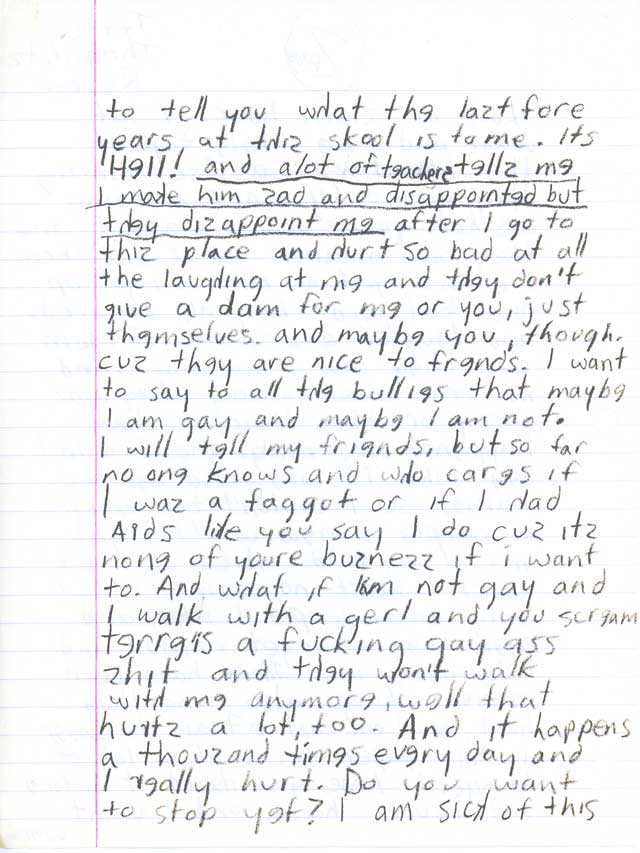 to tell you what the lazt fore
years, at thiz skool is to me. Its
Hell! and alot of teacherz tellz me
I made him zad and disappointed but
they dizappoint me after I go to
thiz place and hurt so bad at all
the laughing at me and they don't
give a dam for me or you, just
themselves. and maybe you, though.
cuz they are nice to frends. I want
to say to all the bullies that maybe
I am gay and maybe I am not.
I will tell my friends, but so far
no one knows and who cares if
I waz a faggot or if I had
AIDS like you say I do cuz itz
none of youre buznezz if i want
to. And what if Im not gay and
I walk with a gerl and you scream
terre is a fucking gay ass
zhit and they won't walk
with me anymore, well that
hurtz a lot, too. And it happens
a thouzand times every day and
I really hurt. Do you want
to stop yet? I am sick of this